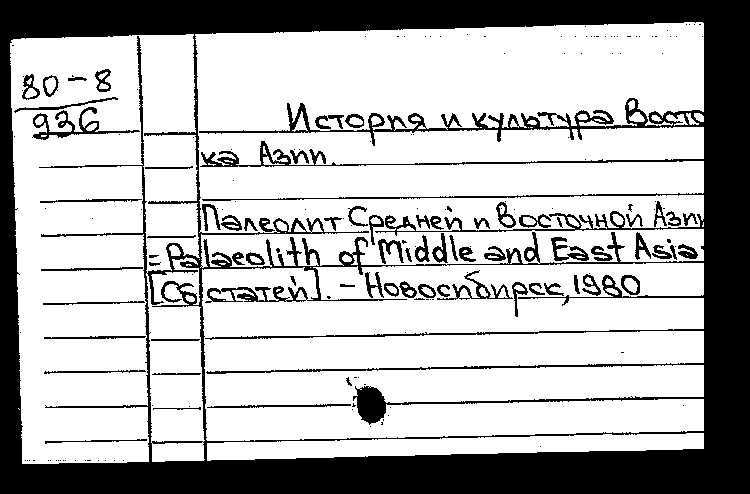 80-8
936
История и культура Восто
ка Азии.
Палеолит Средней и Восточной Азии
= Palaeolith of Middle and East Asia:
[Сб статей]. - Новосибирск, 1980